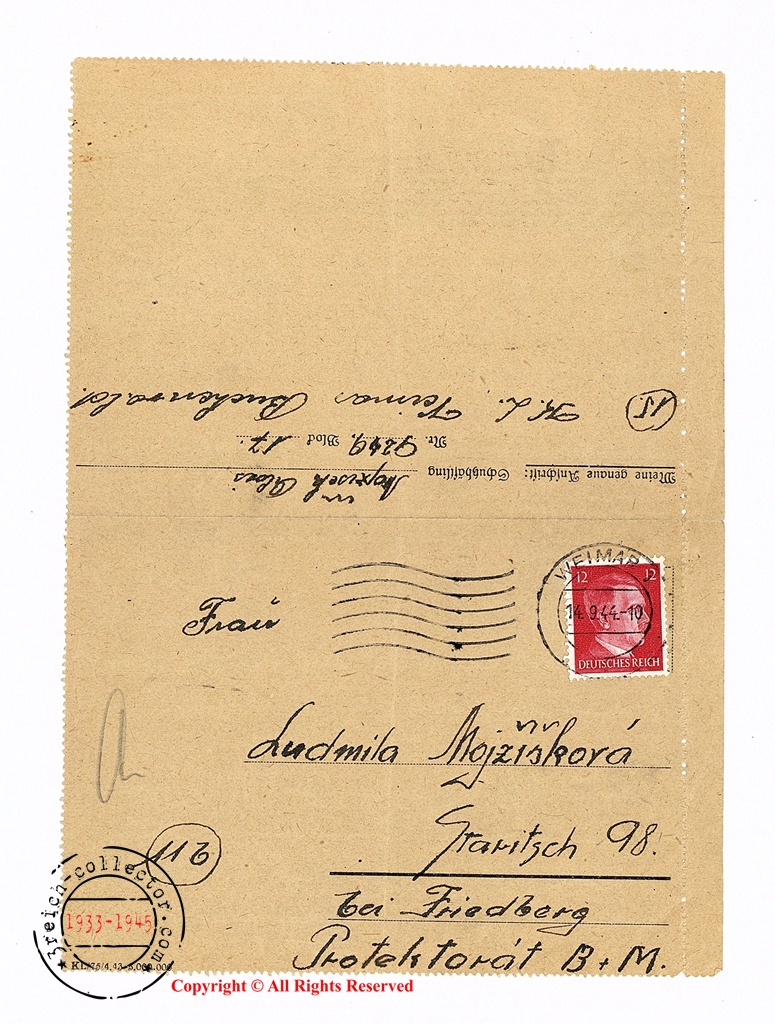 15.
K. L. Weimar Buchenwald
Nr. 9249, Block 17.
Meine genaue Anschrift: Schutzhäftling
Alois
WEIMAR
14.9.44.-10
12 12
DEUTSCHES REICH
Frau
Ludmila Mojžíšková
Staritsch 98.
bei Friedberg
Protektorát B + M.
11b
3reich-collector.com
1933-1945
KL/75/4.43-5.000.000
Copyright © All Rights Reserved